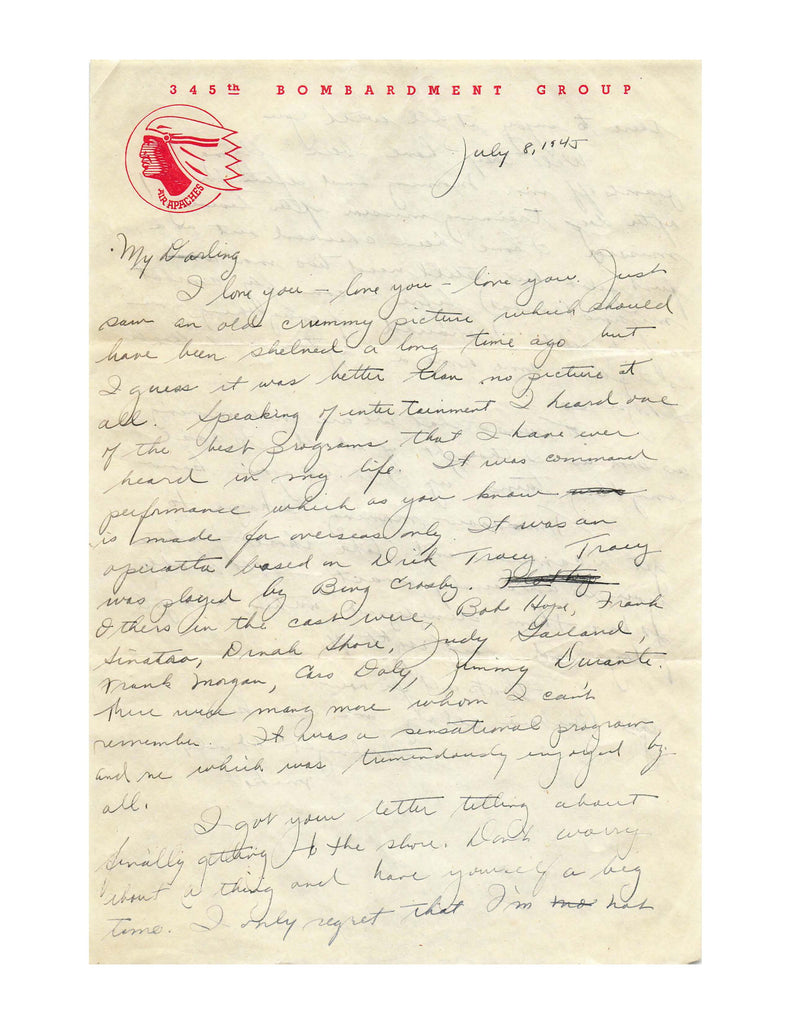 345th BOMBARDMENT GROUP
AIR APACHES
July 8, 1945
My Darling
I love you - love you - love you. Just
saw an old crummy picture which should
have been shelved a long time ago but
I guess it was better than no picture at
all. Speaking of entertainment I heard one
of the best programs that I have ever
heard in my life. It was command
performance which as you know was
is made for overseas only. It was an
operatta based on Dick Tracy. Tracy
was played by Bing Crosby.
Others in the cast were, Bob Hope, Frank
Sinatra, Dinah Shore, Judy Garland,
Frank Morgan, Cass Daly, Jimmy Durante.
There were many more whom I can't
remember. It was a sensational program
and one which was tremendously enjoyed by
all.
I got your letter telling about
finally getting to the shore. Don't worry
about a thing and have yourself a big
time. I only regret that I'm no not